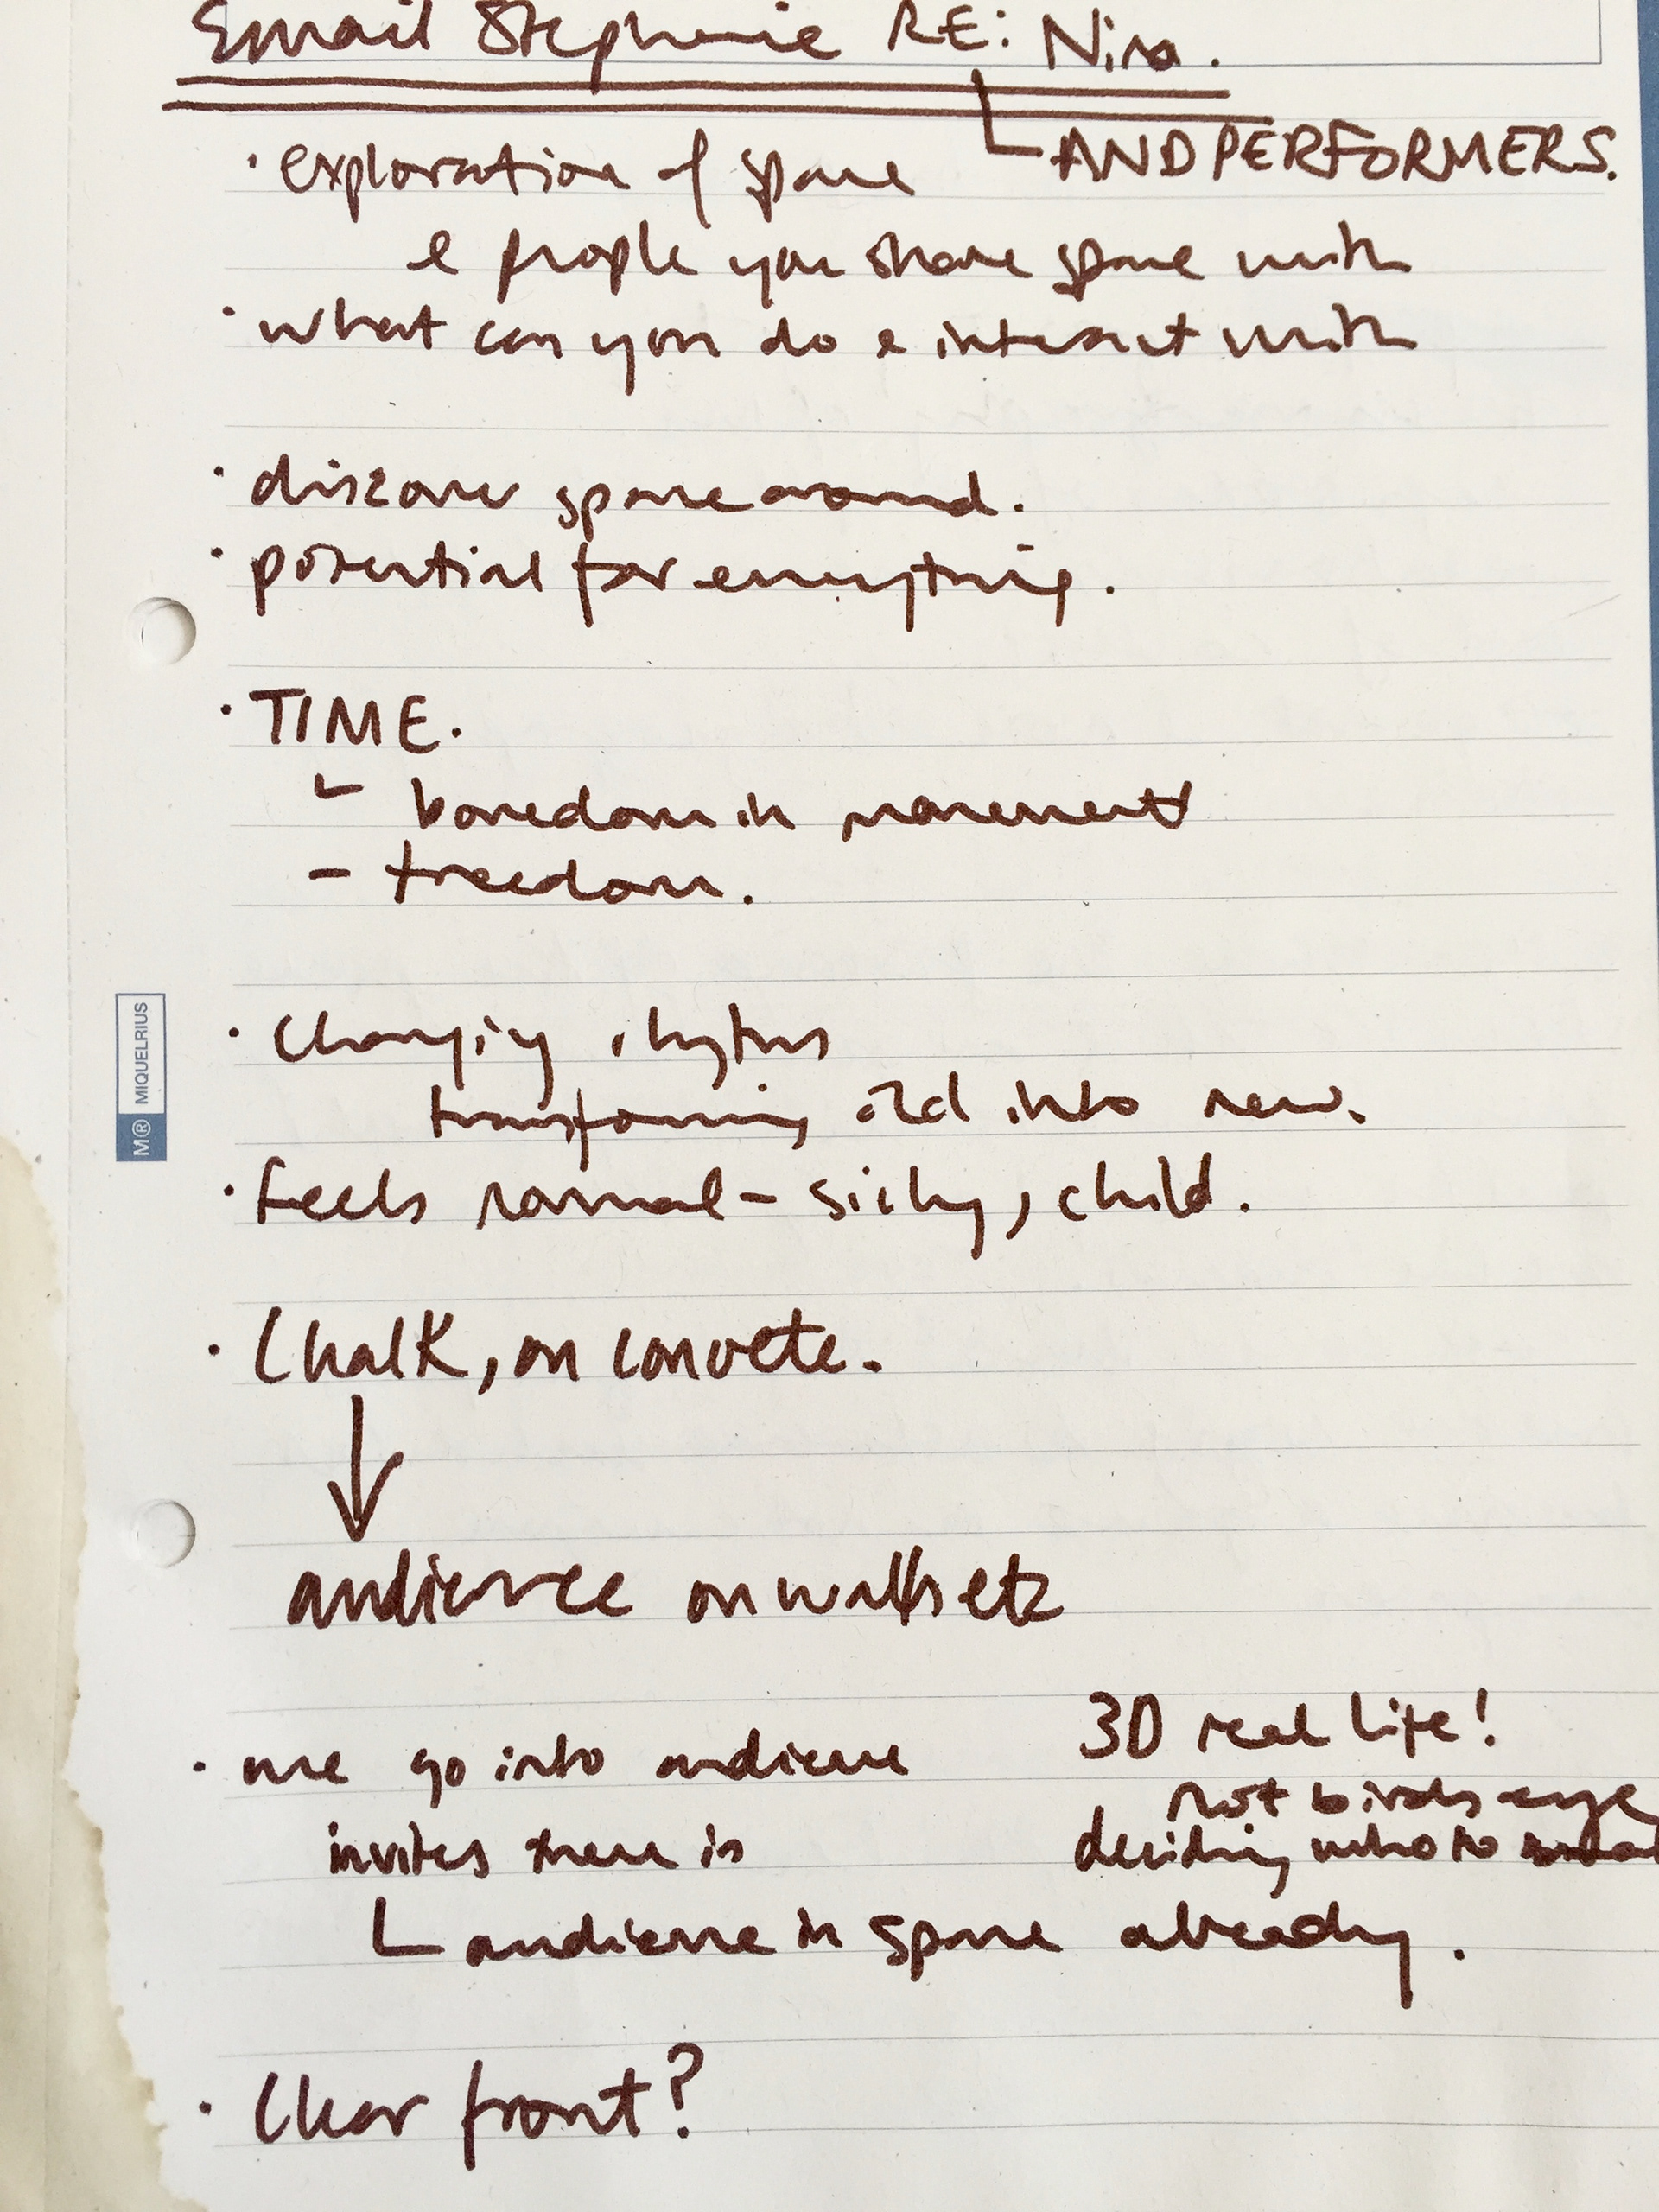 Email Stephanie RE: Nina.
AND PERFORMERS.
· exploration of space
& people you share space with
· what can you do & interact with
· discover space around.
· potential for everything.
· TIME.
boredom in movement
- freedom.
· Changing rhythms
transforming old into new.
· feels normal - silly, child.
· Chalk, on concrete.
audience on walls etc
3D real life!
· we go into audience
not birds eye
invites them in
deciding who to
audience in space already.
· Clear front?
M® MIQUELRIUS